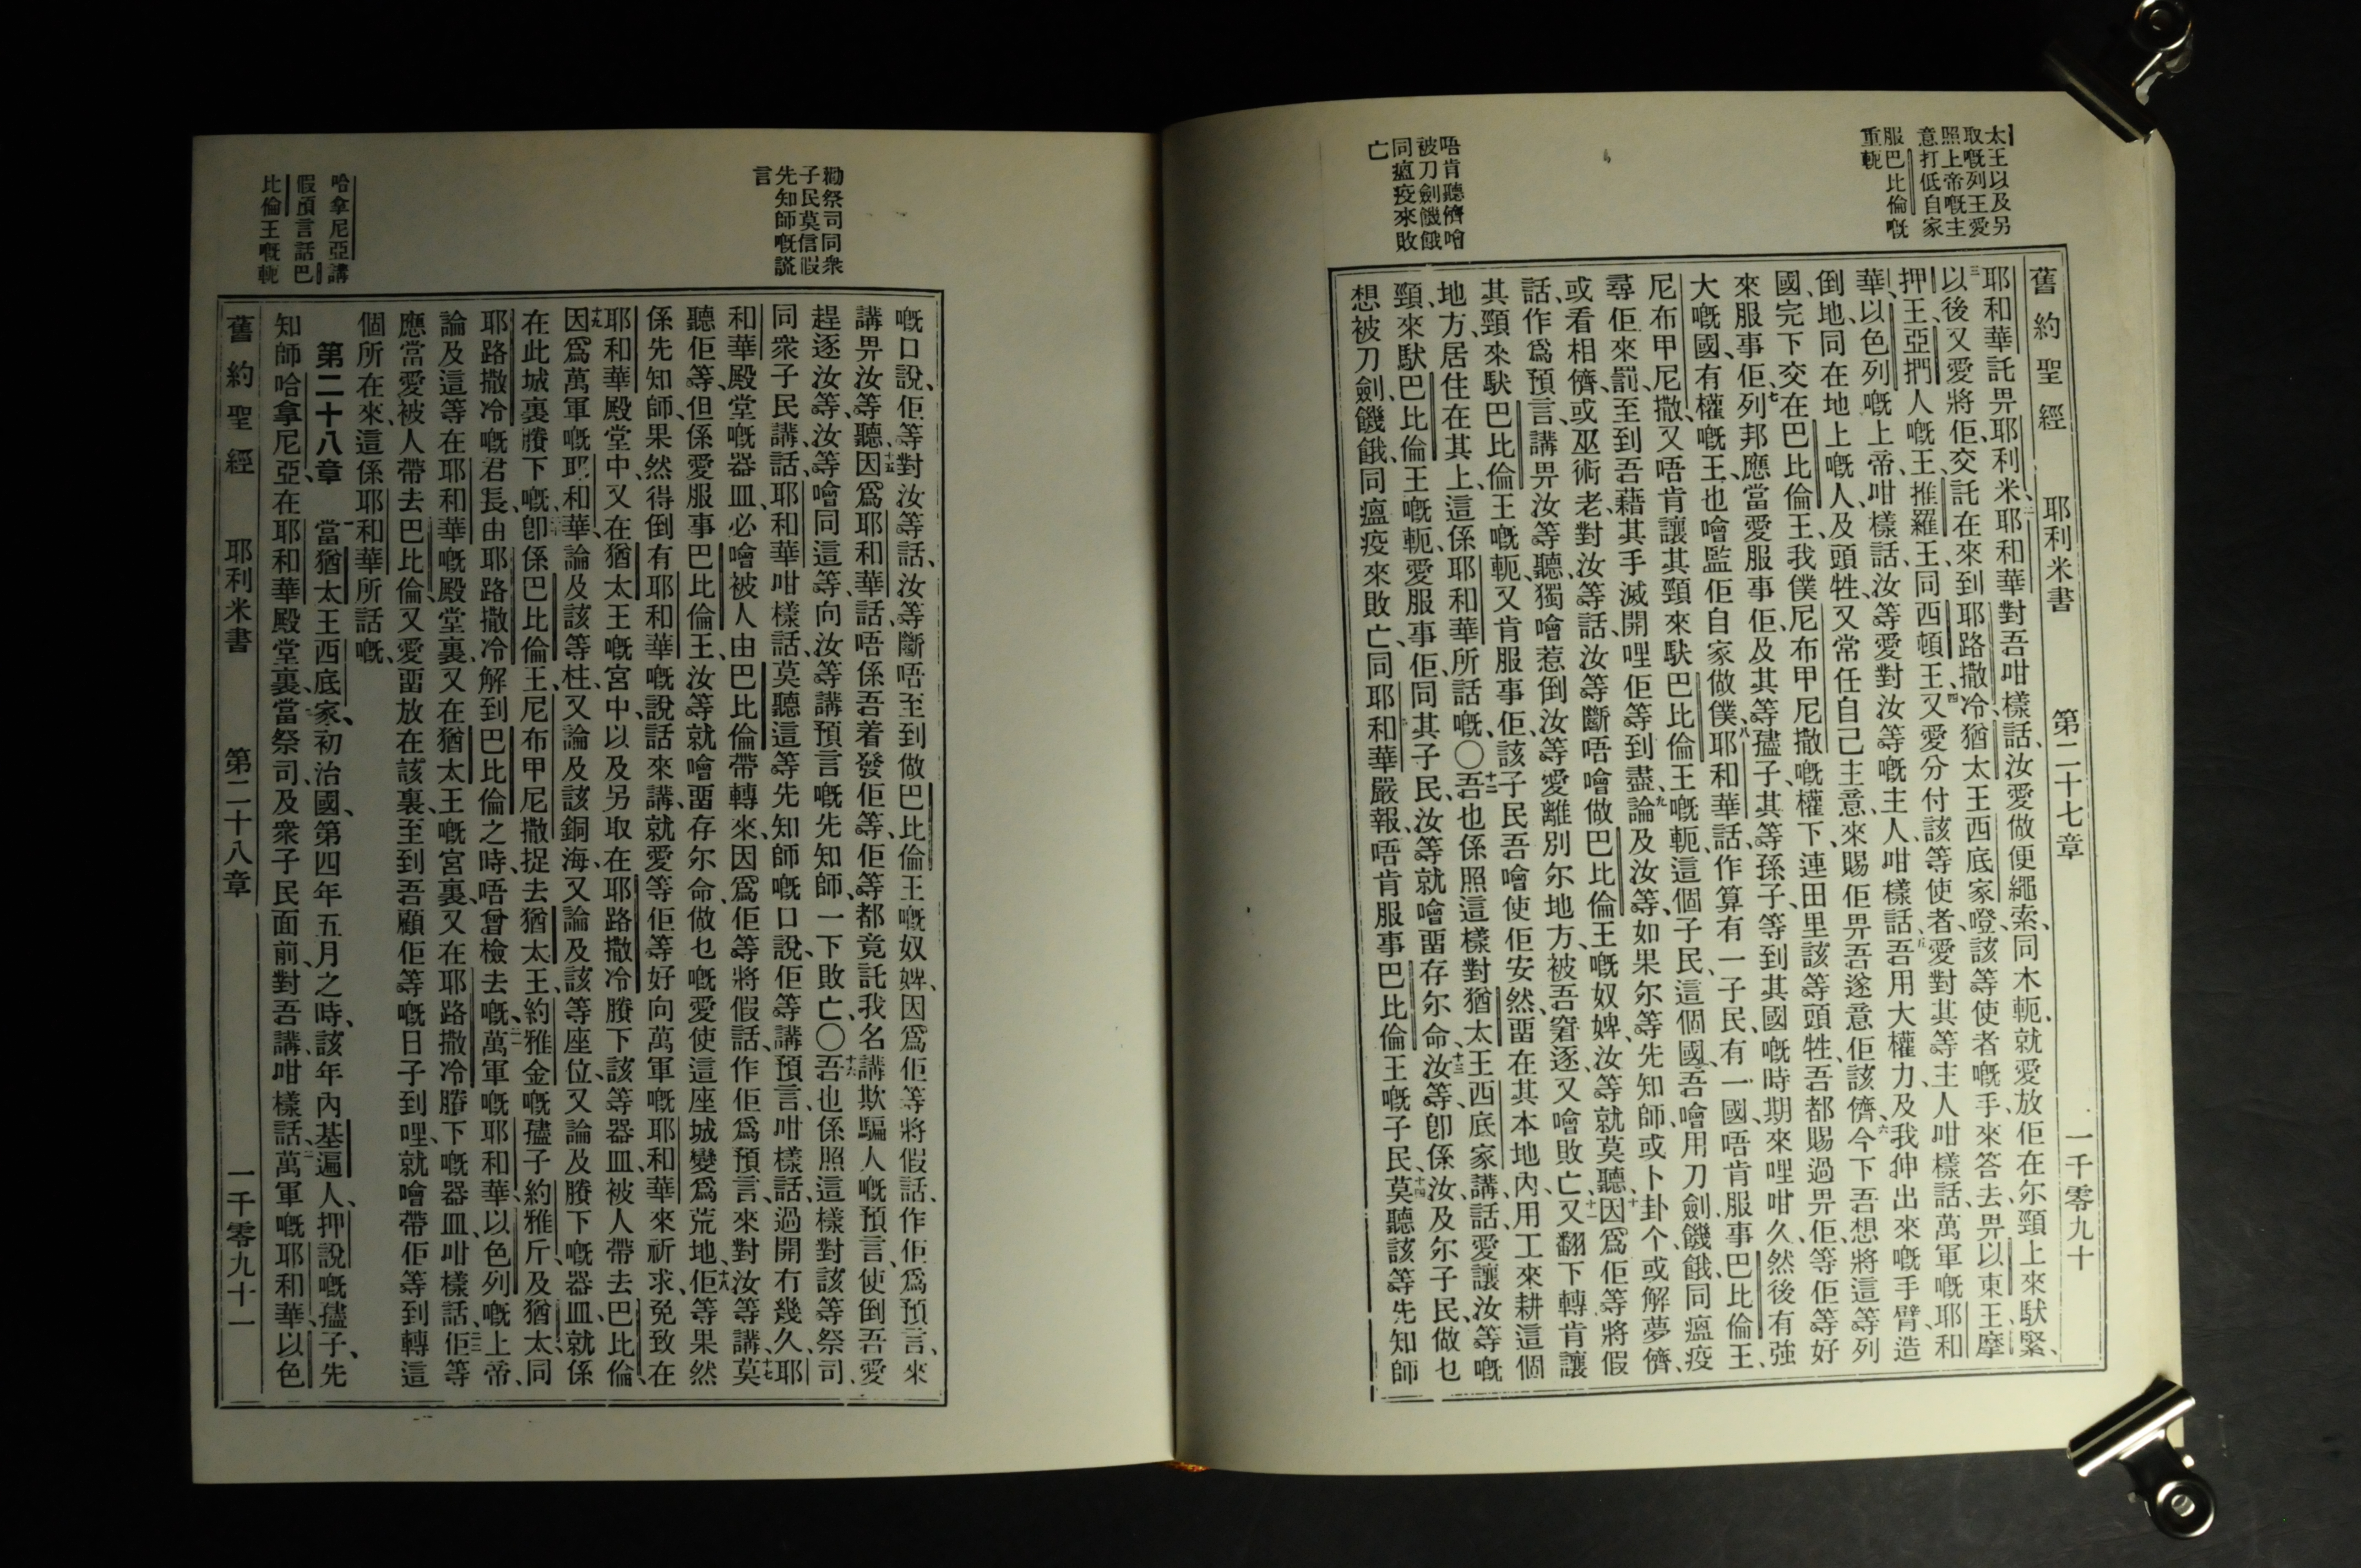 太王以及另
取嘅列王愛
照上帝嘅主
意打低自家
服巴比倫嘅
重軛
唔肯聽儕噲
被刀劍饑餓
同瘟疫來敗
亡
舊約聖經 耶利米書 第二十七章 一千零九十
耶和華託畀、耶利米、二耶和華對吾咁樣話、汝愛做便繩索、同木軛、就愛放佢在尔頸上來䭾緊、
三以後又愛將佢、交託在來到耶路撒冷、猶太王西底家嶝、該等使者嘅手、來答去畀以東王摩
押王、亞捫人嘅王、推羅王、同西頓王、四又愛分付該等使者、愛對其等主人咁樣話、萬軍嘅耶和
華、以色列嘅上帝、咁樣話、汝等愛對汝等嘅主人、咁樣話、五吾用大權力、及我伸出來嘅手臂、造
倒地、同在地上嘅人、及頭牲、又常任自己主意、來賜佢畀吾遂意佢該儕、六今下吾想將這等列
國、完下交在巴比倫王、我僕尼布甲尼撒、嘅權下、連田里該等頭牲、吾都賜過畀佢、等佢等好
來服事佢、七列邦應當愛服事佢、及其等孻子、其等孫子、等到其國嘅時期來哩咁久、然後有強
大嘅國、有權嘅王、也噲監佢自家做僕、八耶和華話、作算有一子民、有一國、唔肯服事巴比倫王、
尼布甲尼撒、又唔肯讓其頸來䭾巴比倫王嘅軛、這個子民、這個國、吾噲用刀劍、饑餓、同瘟疫
尋佢來罰、至到吾藉其手滅開哩佢等到盡、九論及汝等、如果尔等先知師、或卜卦个、或解夢儕、
或看相儕、或巫術老、對汝等話、汝等斷唔噲做巴比倫王嘅奴婢、汝等就莫聽、十因爲佢等將假
話、作爲預言、講畀汝等聽、獨噲惹倒汝等愛離別尔地方、被吾窘逐、又噲敗亡、十一又翻下轉肯讓
其頸來䭾巴比倫王嘅軛、又肯服事佢、該子民吾噲使佢安然、畱在其本地內、用工來耕這個
地方、居住在其上、這係耶和華所話嘅、〇十二吾也係照這樣對猶太王西底家講、話、愛讓汝等嘅
頸、來䭾巴比倫王嘅軛、愛服事佢、同其子民、汝等就噲畱存尔命、十三汝等卽係汝、及尔子民、做乜
想被刀劍、饑餓、同瘟疫來敗亡、同耶和華嚴報、唔肯服事巴比倫王嘅子民、十四莫聽該等先知師
勸祭司同衆
子民莫信假
先知師嘅謊
言
哈拿尼亞講
假預言話巴
比倫王嘅軛
嘅口說、佢等對汝等話、汝等斷唔至到做巴比倫王嘅奴婢、因爲佢等將假話、作佢爲預言、來
講畀汝等聽、十五因爲耶和華話、唔係吾着發佢等、佢等都竟託我名講欺騙人嘅預言、使倒吾愛
趕逐汝等、汝等噲同這等、向汝等講預言嘅先知師、一下敗亡、〇十六吾也係照這樣對該等祭司、
同衆子民講、話、耶和華咁樣話、莫聽這等先知師嘅口說、佢等講預言、咁樣話、過開冇幾久、耶
和華殿堂嘅器皿、必噲被人由巴比倫帶轉來、因爲佢等將假話、作佢爲預言、來對汝等講、十七莫
聽佢等、但係愛服事巴比倫王、汝等就噲畱存尔命、做乜嘅愛使這座城變爲荒地、十八佢等果然
係先知師、果然得倒有耶和華嘅說話來講、就愛等佢等好向萬軍嘅耶和華來祈求、免致在
耶和華殿堂中、又在猶太王嘅宮中、以及另取在耶路撒冷賸下該等器皿、被人帶去巴比倫、
十九因爲萬軍嘅耶和華、論及該等柱、又論及該銅海、又論及該等座位、又論及賸下嘅器皿、就係
在此城裏賸下嘅、二十卽係巴比倫王、尼布甲尼撒捉去猶太王、約雅金嘅孻子、約雅斤、及猶太同
耶路撒冷嘅君長、由耶路撒冷解到巴比倫之時、唔曾檢去嘅、二一萬軍嘅耶和華、以色列嘅上帝、
論及這等在耶和華嘅殿堂裏、又在猶太王嘅宮裏、又在耶路撒冷賸下嘅器皿、咁樣話、二二佢等
應當愛被人帶去巴比倫、又愛畱放在該裏、至到吾顧佢等嘅日子到哩、就噲帶佢等到轉這
個所在來、這係耶和華所話嘅、
第二十八章 當猶太王西底家、初治國、第四年五月之時、該年內基遍人、押說嘅孻子、先
知師哈拿尼亞、在耶和華殿堂裏、當祭司、及衆子民面前、對吾講、咁樣話、二萬軍嘅耶和華、以色
舊約聖經 耶利米書 第二十八章 一千零九十一